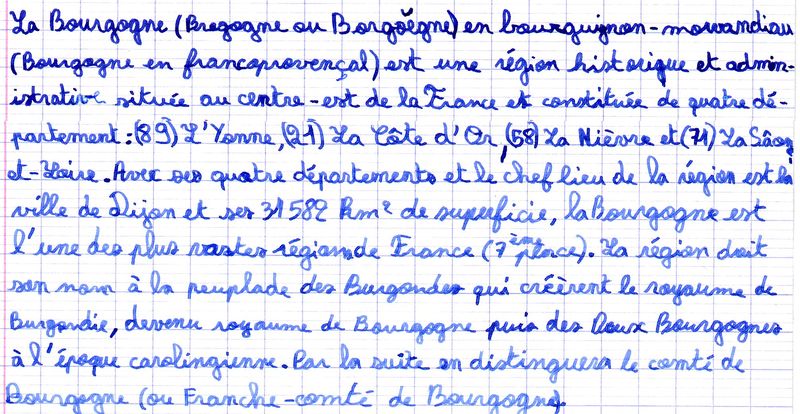 La Bourgogne (Bregogne ou Borgoëgne) en bourguignon-morvandiau
(Bourgogne en francoprovençal) est une région historique et admin-
istrative située au centre-est de la France et constituée de quatre dé-
partement : (89) L'Yonne, (21) La Côte d'Or, (58) La Nièvre et (71) La Sâone
et-Loire. Avec ses quatre départements et le chef lieu de la région est la
ville de Dijon et ses 31 582 km² de superficie, la Bourgogne est
l'une des plus vastes régions de France (7ème place). La région doit
son nom à la peuplade des Burgondes qui créèrent le royaume de
Burgondie, devenu royaume de Bourgogne puis des Deux Bourgognes
à l'époque carolingienne. Par la suite on distinguera le comté de
Bourgogne (ou Franche-comté de Bourgogne).